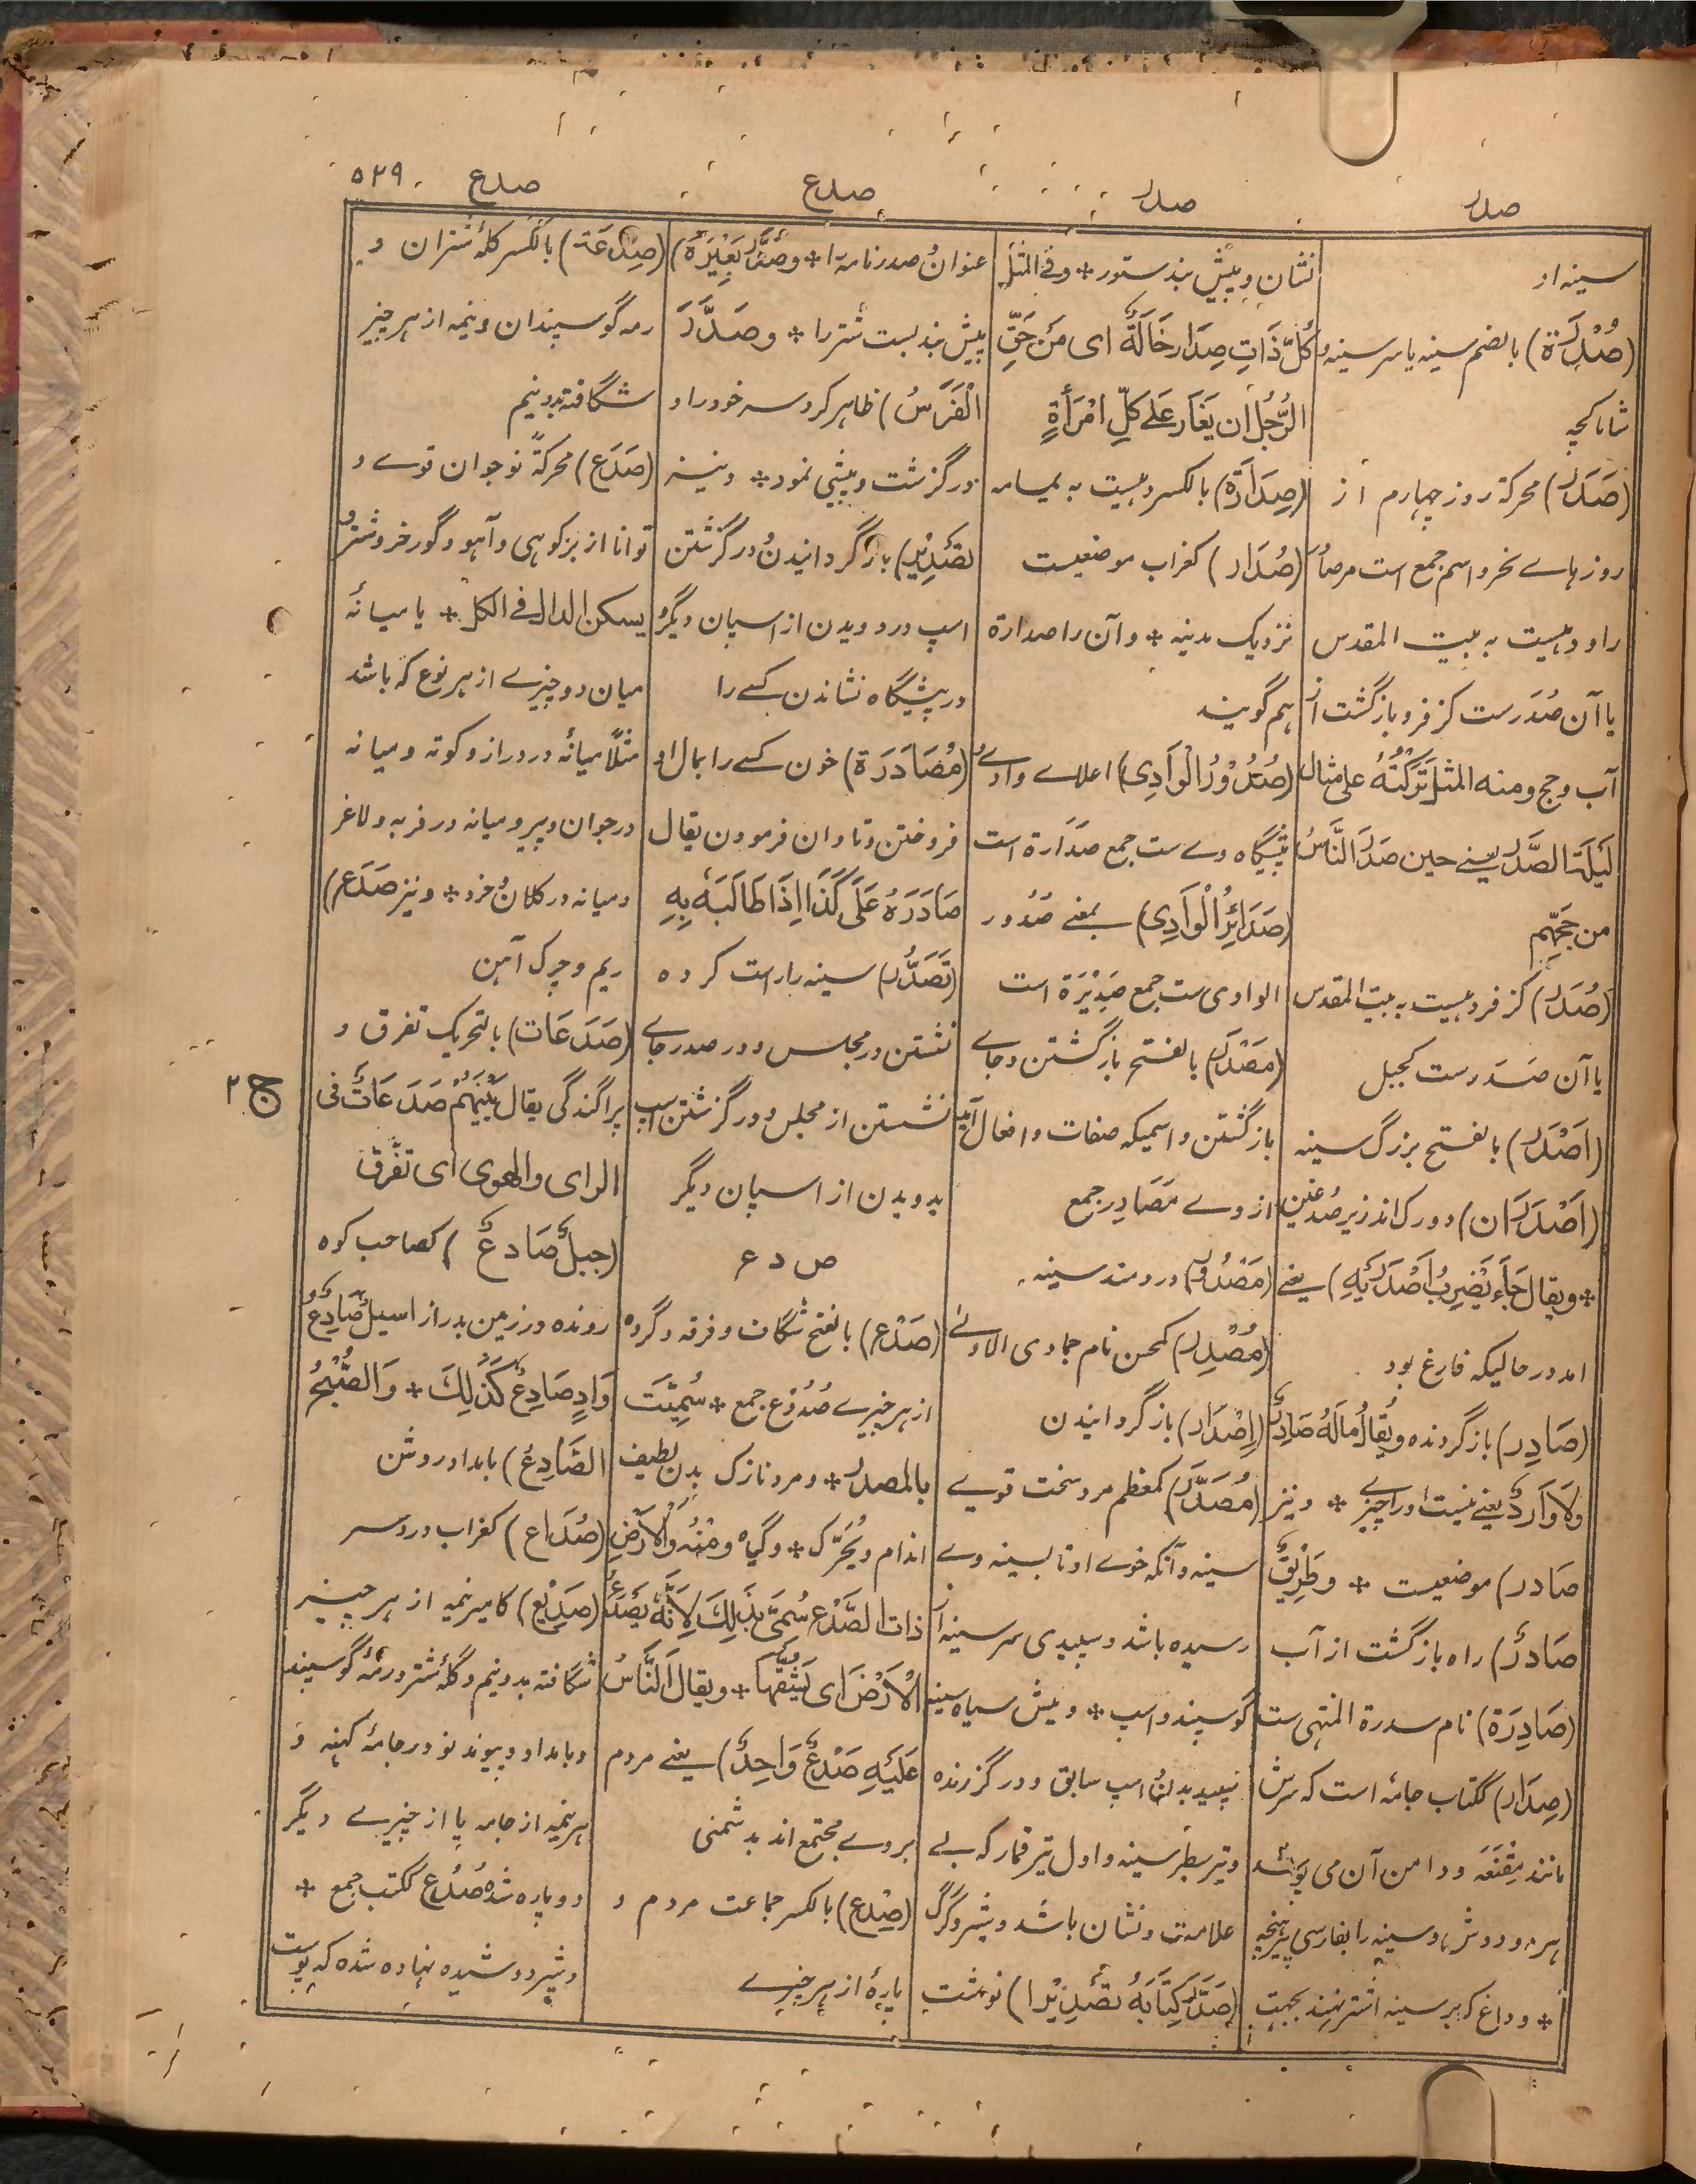 صدر
صدر
صدع
صدع
۵۲۹
سینه او
(صُدْرَة) بالضم سینه یا سر سینه و
شاماکچه
(صَدَر) محرکة روز چهارم از
روزهاے نحر و اسم جمع است مر صا
را و دهیست به بیت المقدس
یا آن صُدَرست کزفر و بازگشت از
آب و حج و منه المثل تَرَكْتُهُ علی مثال
لَيْلَةِ الصَّدَر یعنے حین صَدَرَ النَّاسُ
من حَجِّهِم
(صُدَر) کزفر دهیست به بیت المقدس
یا آن صَدَرست کجبل
(اَصْدَر) بالفتح بزرگ سینه
(اَصْدَرَان) دو رگ اند زیر صُدغین
* ویقال جَاءَ يَضْرِبُ اَصْدَرَيْهِ) یعنے
امد در حالیکه فارغ بود
(صَادِر) بازگردنده ویُقالُ مَالَهُ صَادِرٌ
وَلَا وَارِدٌ یعنے نیست اورا چیزے * و نیز
صادر) موضعیست * وطَرِيْقٌ
صَادرٌ) راه بازگشت از آب
(صَادِرَة) نام سدرة المنتهی ست
(صِدَار) ککتاب جامهٔ است که سرش
مانند مِقْنَعَه و دامن آن می پوشد
هر دو دوش را و سینه را بفارسی پرنیچه
* و داغ که بر سینه اشتر نهند بجهت
نشان و پیش بند ستور * وفے المثل
كُلُّ ذَاتِ صِدَارٍ خَالَةٌ ای مَنْ حَقِّ
الرَّجُلِ ان يَغَارَ عَلےٰ كُلِّ امْرَأَةٍ
(صِدَارَة) بالکسر دهیست به یمامه
(صُدَار) کغراب موضعیست
نزدیک مدینه * و آن را صدارة
هم گویند
(صُدُوْرُ الْوَادِی) اعلاے وادے و
پیشگاه وے ست جمع صَدَارة است
(صَدَائِرُ الْوَادِی) بمعنے صُدُور
الوادی ست جمع صَدِيْرَة است
(مَصْدَر) بالفتح بازگشتن و جاے
بازگشتن و اسمیکه صفات و افعال آید
از وے مَصَادِر جمع
(مَصْدُور) دردمند سینه
(مُصْدِر) کمحسن نام جمادی الاولے
(اِصْدَار) بازگردانیدن
(مُصَدَّر) کمعظم مرد سخت قوے
سینه و آنکه خوے او تا بسینه وے
رسیده باشد و سپیدی سر سینه از
گوسپند و اسپ * و میش سیاه سینه
سپید بدن و اسپ سابق و درگزرنده
و تیر سطبر سینه و اول تیر قمار که بے
علامت و نشان باشد و شیر و گرگ
(صَدَّرَ كِتَابَهُ تَصْدِيْرًا) نوشت
عنوان و صدر نامه را * وصَدَّرَ بَعِيْرَهُ)
پیش بند بست شتر را * وصَدَّرَ
الْفَرَسُ) ظاهر کرد سر خود را و
درگزشت و پیشی نمود * و نیز
تَصْدِيْر) بازگردانیدن و درگزشتن
اسپ در دویدن از اسپان دیگر و
در پیشگاه نشاندن کسے را
(مُصَادَرَة) خون کسے را بمال او
فروختن و تاوان فرمودن یقال
صَادَرَهُ عَلَى كَذَا اِذَا طَالَبَهُ بِهِ
(تَصَدُّر) سینه را راست کرده
نشستن در مجلس و در صدر جاے
نشستن از مجلس و درگزشتن اسپ
بدویدن از اسپان دیگر
ص د ع
(صَدْع) بالفتح شگاف و فرقه و گروه
از هر چیزے صُدُوْع جمع * سُمِّيَتْ
بالمصدر * و مرد نازک بدن لطیف
اندام ويُحَرَّك * و گیاه ومِنْهُ وَالْاَرْضِ
ذات الصَّدْع سُمِّيَ بِذٰلِكَ لِاَنَّهُ يَصْدَعُ
الْاَرْضَ اى يَشُقُّهَا * ویقال اَلنَّاسُ
عَلَيْهِ صَدْعٌ وَاحِدٌ) یعنے مردم
بروے مجتمع اند بدشمنی
(صِدْع) بالکسر جماعت مردم و
پارۀ از هر چیزے
(صِدْعَة) بالکسر گلهٔ شتران و
رمه گوسپندان و نیمه از هر چیز
شگافته بدونیم
(صَدَع) محرکةً نوجوان قوے و
توانا از بز کوهی و آهو و گورخر و شتر و
یسکن الدال فے الکل * یا میانهٔ
میان دو چیزے از هر نوع که باشد
مثلاً میانهٔ در دراز و کوته و میانه
در جوان و پیر و میانه در فربه و لاغر
و میانه در کلان و خرد * و نیز صَدَع)
ریم و چرک آهن
(صَدَعَات) بالتحریک تفرق و
پراگندگی یقال بَيْنَهُمْ صَدَعَاتٌ فی
الرای والهوی ای تَفَرُّقٌ
(جبلٌ صَادعٌ) کصاحب کوه
رونده در زمین بدراز اسیلٌ صَادِعٌ و
وَادٍ صَادِعٌ كَذٰلِكَ * وَالصُّبْحُ
الصَّادِعُ) بامداد روشن
(صُدَاع) کغراب دردسر
(صَدِيْع) کامیر نیمه از هر چیز
شگافته بدونیم و گلهٔ شتر و رمهٔ گوسپند
و بامداد و پیوند نو در جامهٔ کهنه و
هر نیمه از جامه یا از چیزے دیگر
دوپاره شده صُدُع ککتب جمع *
و شیر دوشیده نهاده شده که پوست
ج ۲